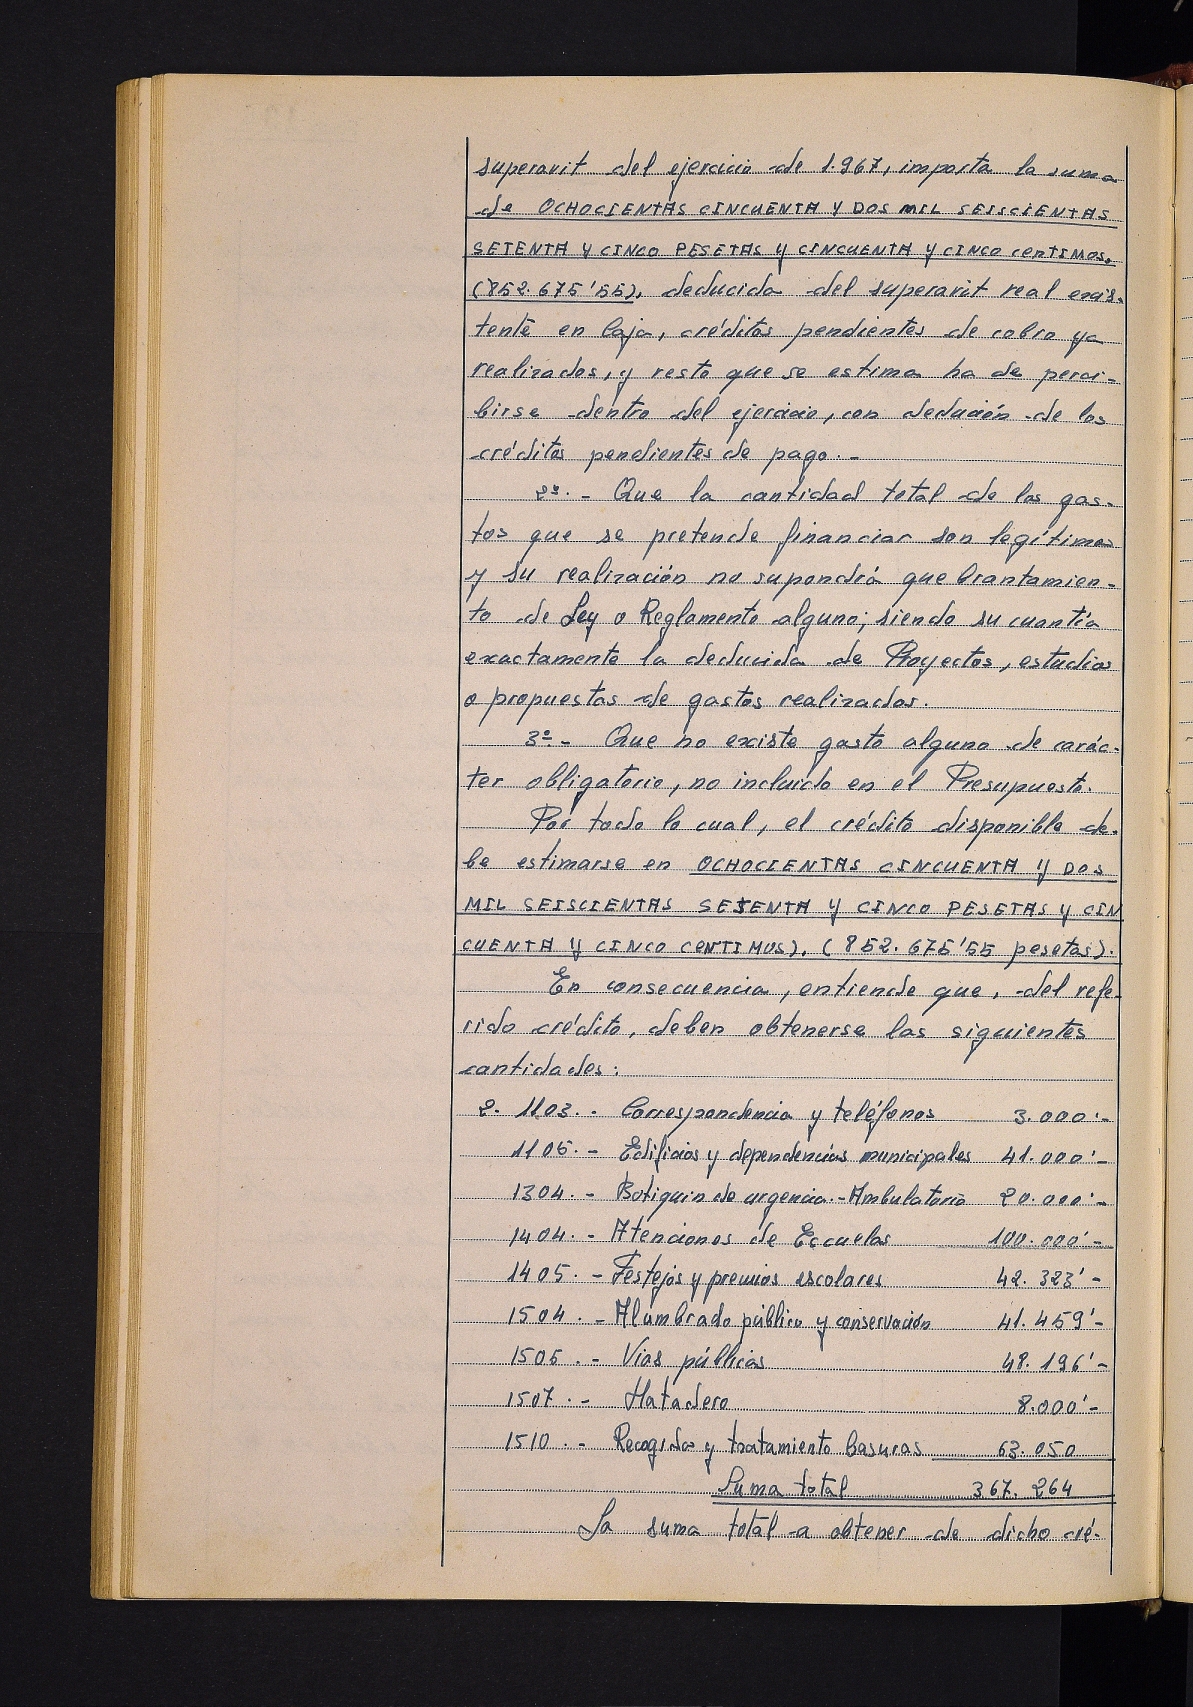 superavit del ejercicio de 1.967, importa la suma
de OCHOCIENTAS CINCUENTA Y DOS MIL SEISCIENTAS
SETENTA Y CINCO PESETAS Y CINCUENTA Y CINCO CENTIMOS.
(852.675'55), deducida del superavit real exis-
tente en Caja, créditos pendientes de cobro ya
realizados, y resto que se estima ha de perci-
birse dentro del ejercicio, con deducción de los
créditos pendientes de pago.-
2º.- Que la cantidad total de los gas-
tos que se pretende financiar son legítimos
y su realización no supondrá quebrantamien-
to de Ley o Reglamento alguno; siendo su cuantía
exactamente la deducida de Proyectos, estudios
o propuestas de gastos realizados.
3º.- Que no existe gasto alguno de carác-
ter obligatorio, no incluido en el Presupuesto.
Por todo lo cual, el crédito disponible de-
be estimarse en OCHOCIENTAS CINCUENTA Y DOS
MIL SEISCIENTAS SETENTA Y CINCO PESETAS Y CIN
CUENTA Y CINCO CENTIMOS). (852.675'55 pesetas).
En consecuencia, entiende que, del refe-
rido crédito, deben obtenerse las siguientes
cantidades:
2. 1103.- Correspondencia y teléfonos 3.000'-
1105.- Edificios y dependencias municipales 41.000'-
1304.- Botiquin de urgencia.-Ambulatorio 20.000'-
1404.- Atenciones de Escuelas 100.000'-
1405.- Festejos y premios escolares 42.323'-
1504.- Alumbrado público y conservación 41.459'-
1505.- Vias públicas 48.196'-
1507.- Matadero 8.000'-
1510.- Recogida y tratamiento basuras 63.050
Suma total 367.264
La suma total a obtener de dicho cré-